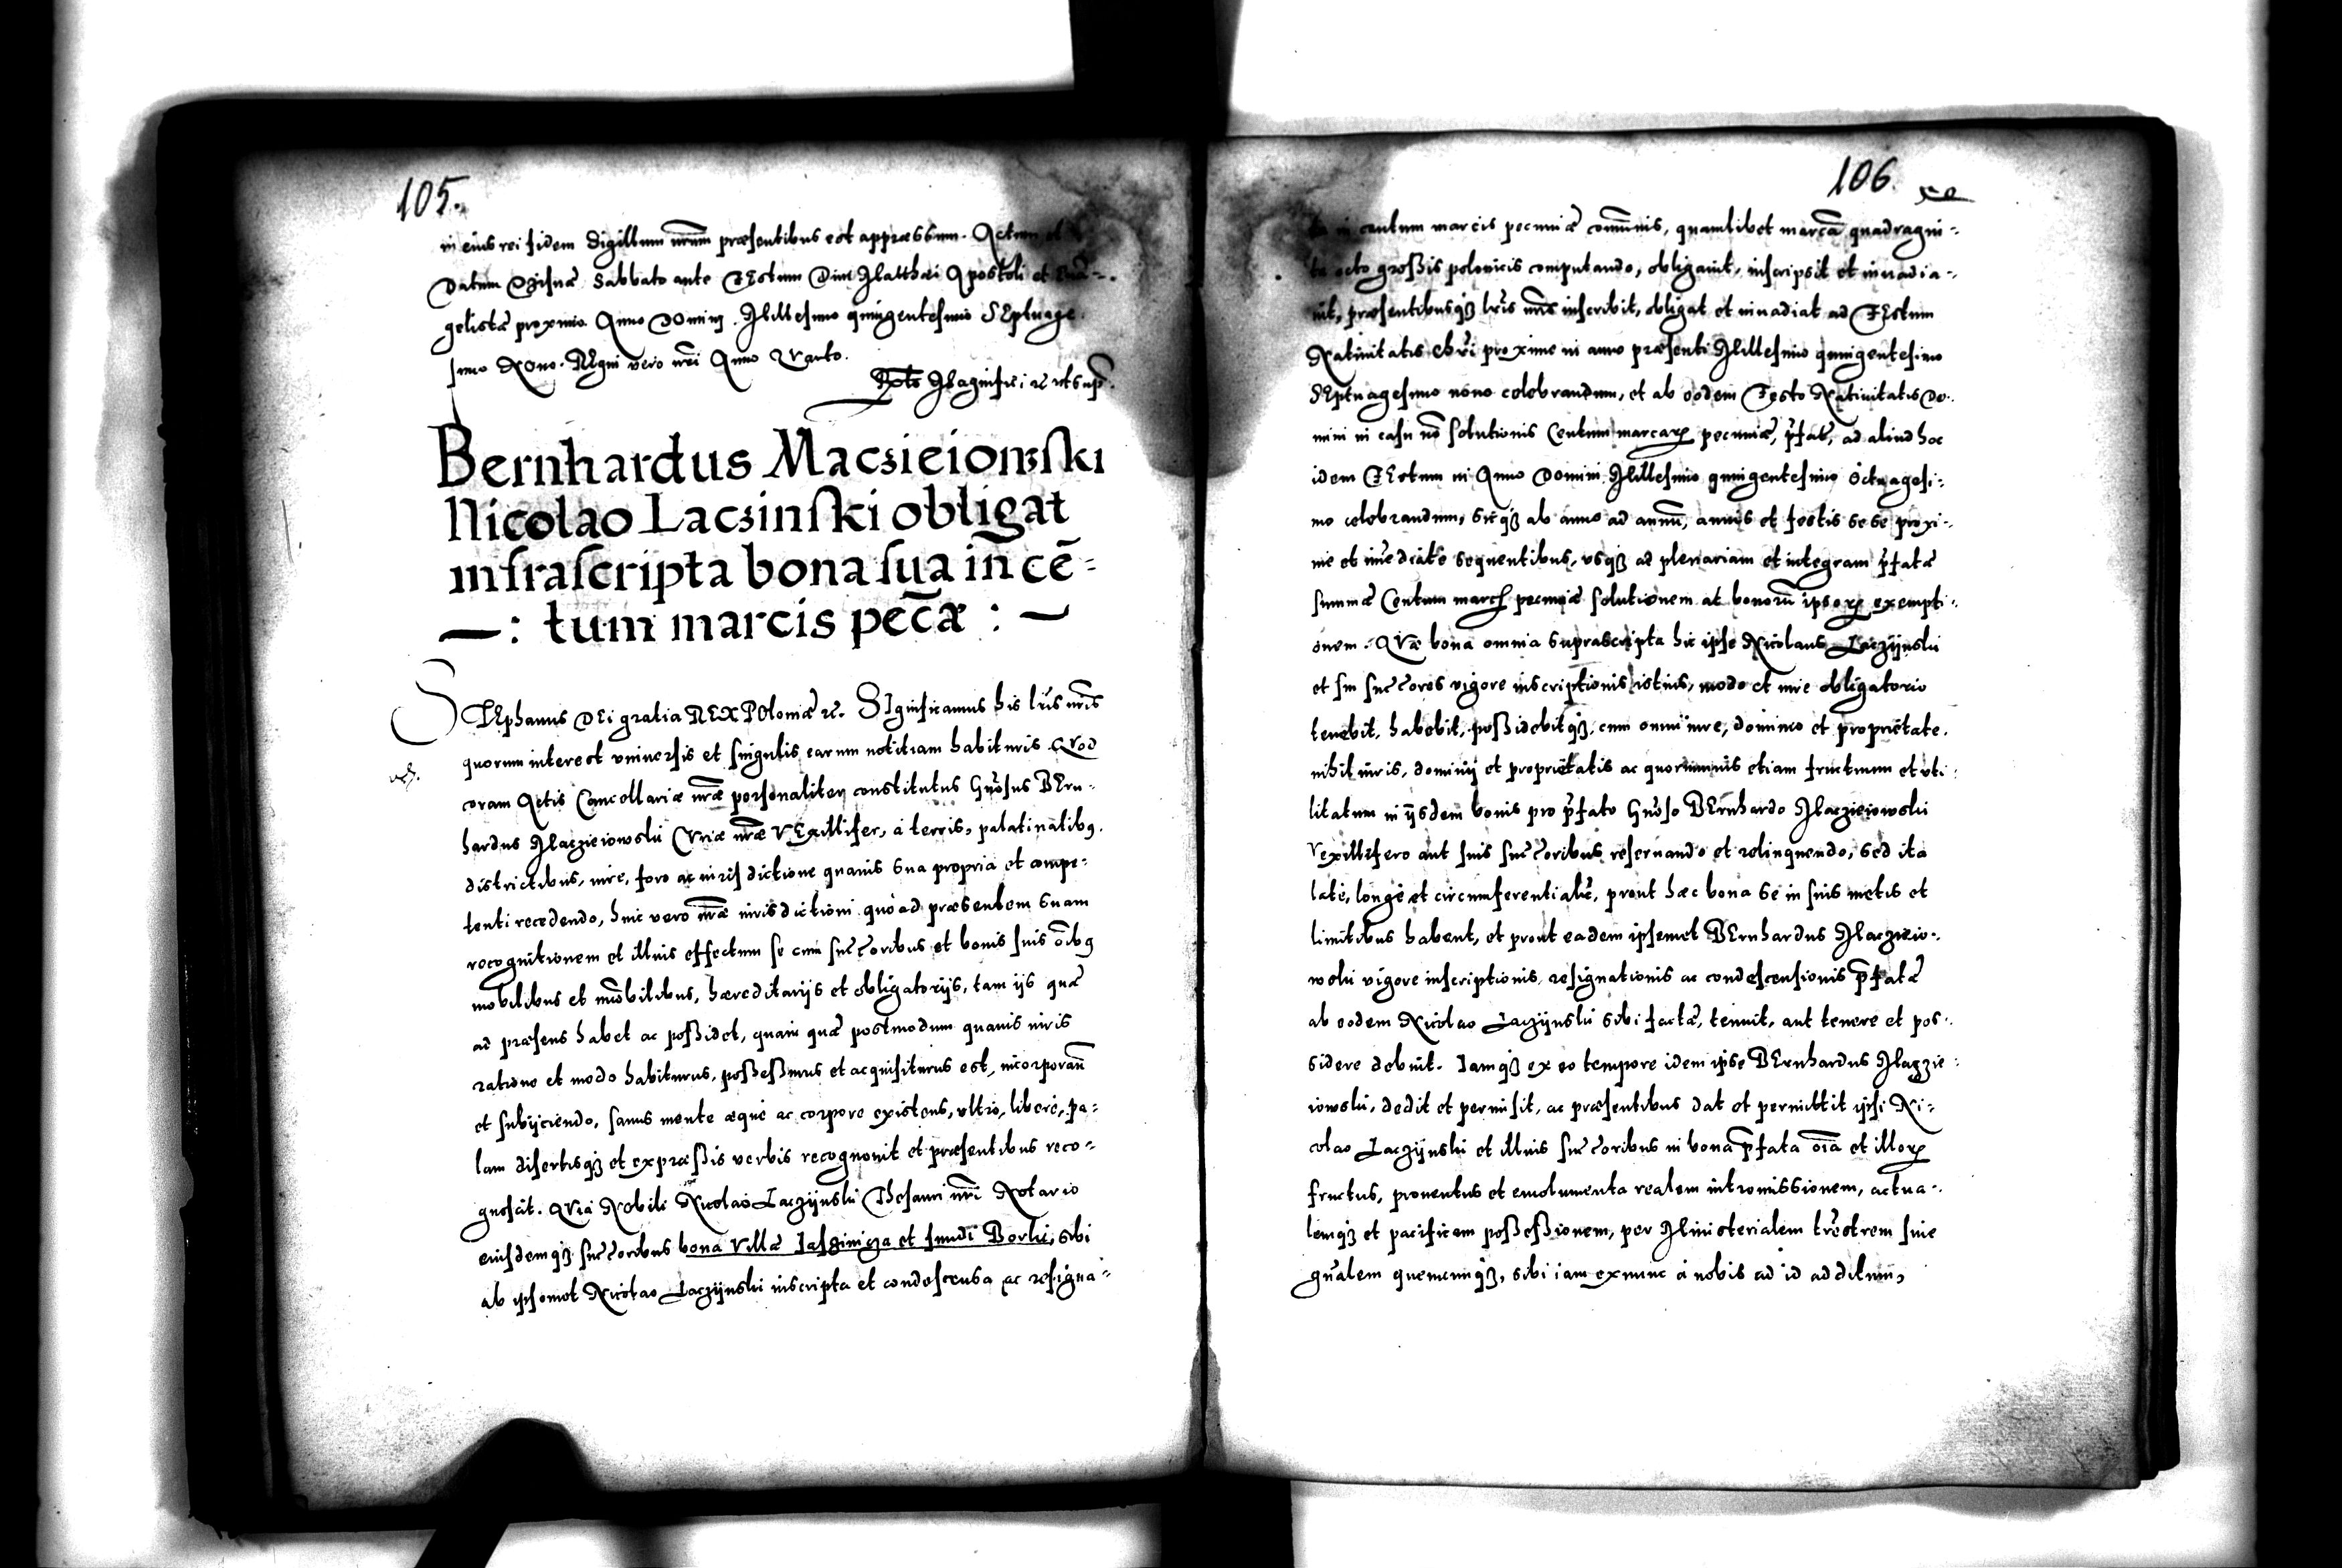 105.
in eius rei fidem Sigillum nrum præsentibus est appræssum. Actum et
Datum Visnæ Sabbato ante FEstum Divi Matthæi Apostoli et Evā-
gelistæ proximo. Anno DOmini Millesimo quingentesimo SEptuage
simo NOno. REgni vero nri Anno Qvarto.
Rpts Magnifici zc vt sup.
Bernhardus Macsieiowski
Nicolao Lacsinski obligat
infrascripta bona sua in cē-
tum marcis pecæ :
STEphanus DEi gratia REX POloniæ zc. SIgnificamus his lris nris
quorum interest vniversis et singulis earum notitiam habituris. QVod
coram Actis Cancellariæ nræ personaliter constitutus Gnosus BErn-
hardus Maczieiowski CVriæ nræ VExillifer, á terris, palatinatibq.
districtibus, iure, foro ac iurisdictione quavis sua propria et compe-
tenti recedendo, huic vero nræ iurisdictioni quo ad præsentem suam
recognitionem et illius effectum se cum succoribus et bonis suis oibq
mobilibus et immobilibus, hæreditariis et obligatoriis, tam iis quæ
ad præsens habet ac possidet, quam quæ postmodum quavis iuris
ratione et modo habiturus, possessurus et acquisiturus est, incorporan
et subiiciendo, sanus mente æque ac corpore existens, vltro, libere, pa-
lam disertisq et expræssis verbis recognovit et præsentibus reco-
gnoscit. QVia Nobili Nicolao Laczijnski Thesauri nri Notario
eiusdemq succoribus bona Villæ Jasginicza et fundi Borki, sibi
ab ipsomet Nicolao Laczijnski inscripta et condescensa ac resigna-
106.
in centum marcis pecuniæ comunis, quamlibet marcam quadragin-
ta octo grossis polonicis computando, obligavit, inscripsit et invadia-
vit, præsentibusq lris nris inscribit, obligat et invadiat ad FEstum
Nativitatis chri proxime in anno præsenti Millesimo quingentesimo
SEptuagesimo nono celebrandum, et ab eodem Festo Nativitatis Do-
mini in casu no solutionis Centum marcar pecuniæ, pfat, ad aliud hoc
idem FEstum in Anno Domini Millesimo quingentesimo Octuagesi-
mo celebrandum, sicq ab anno ad annu, annis et festis sese proxi-
me et imediate sequentibus, vsq ad plenariam et integram pfatæ
summæ Centum march pecuniæ solutionem at bonoru ipsor exempti-
onem. QVæ bona omnia suprascripta hic ipse Nicolaus Laczijnski
et sui succores vigore inscriptionis istius, modo et iure obligatorio
tenebit, habebit, possidebitq, cum omni iure, dominio et proprietate.
nihil iuris, dominij et proprietatis ac quorumvis etiam fructuum et vti-
litatum in ijsdem bonis pro pfato Gnoso BErnhardo Maczieiowski
Vexillifero aut suis succoribus reservando et relinquendo, sed ita
late, longe et circumferentialr, prout hæc bona se in suis metis et
limitibus habent, et prout eadem ipsemet BErnhardus Maczieio-
wski vigore inscriptionis, resignationis ac condescensionis pfatæ
ab eodem Nicolao Laczijnski sibi factæ, tenuit, aut tenere et pos-
sidere debuit. Iamq ex eo tempore idem ipse BErnhardus Maczie-
iowski, dedit et permisit, ac præsentibus dat et permittit ipsi Ni-
colao Laczijnski et illius succoribus in bona pfata oia et illor
fructus, proventus et emolumenta realem intromissionem, actua-
lemq et pacificam possessionem, per Ministerialem trestrem sive
gnalem quemcunq, sibi iam ex nunc á nobis ad id additum,